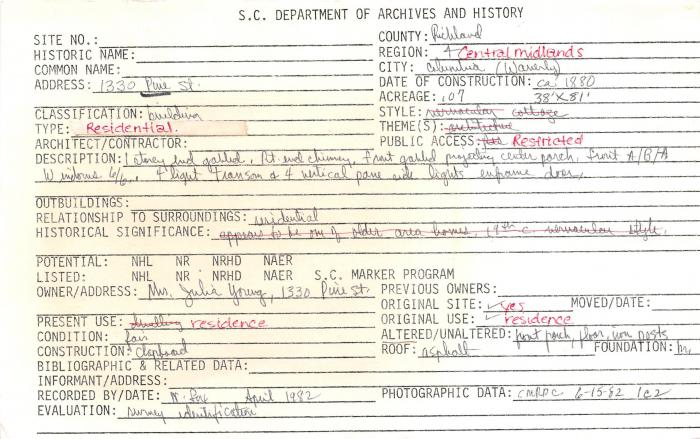 S.C. DEPARTMENT OF ARCHIVES AND HISTORY
SITE NO.:
COUNTY: Richland
HISTORIC NAME:
REGION: 4 Central midlands
COMMON NAME:
CITY: Columbia (Waverly)
ADDRESS: 1330 Pine St.
DATE OF CONSTRUCTION: ca 1880
ACREAGE: .07 38'X81'
CLASSIFICATION: building
STYLE: vernacular cottage
TYPE: Residential.
THEME(S): architecture
ARCHITECT/CONTRACTOR:
PUBLIC ACCESS: Restricted
DESCRIPTION: 1 storey end gabled, Rt. end chimney, front gabled projecting center porch, front A/B/A
Windows 6/6, 4 light transom & 4 vertical pane side lights enframe door,
OUTBUILDINGS:
RELATIONSHIP TO SURROUNDINGS: residential
HISTORICAL SIGNIFICANCE: appears to be one of older area homes, 19th c. vernacular style.
POTENTIAL: NHL NR NRHD NAER
LISTED: NHL NR NRHD NAER S.C. MARKER PROGRAM
OWNER/ADDRESS: Mrs. Julia Young, 1330 Pine St.
PREVIOUS OWNERS:
ORIGINAL SITE: yes MOVED/DATE:
PRESENT USE: dwelling residence
ORIGINAL USE: residence
CONDITION: fair
ALTERED/UNALTERED: front porch, floor, iron posts
CONSTRUCTION: clapboard
ROOF: asphalt FOUNDATION:
BIBLIOGRAPHIC & RELATED DATA:
INFORMANT/ADDRESS:
RECORDED BY/DATE: N. Fox April 1982
PHOTOGRAPHIC DATA: CMRPC 6-15-82 1&2
EVALUATION: survey identification